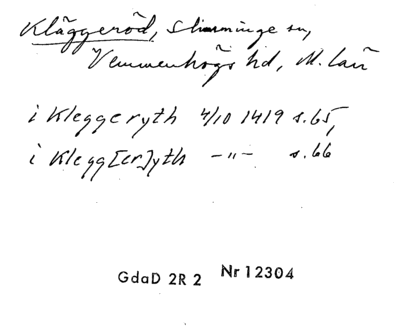 Kläggeröd, Slimminge sn,
Vemmenhögs hd, M. län
i Kleggeryth 4/10 1419 s. 65,
i Klegg[er]yth -"- s. 66
GdaD 2R 2 Nr 12304